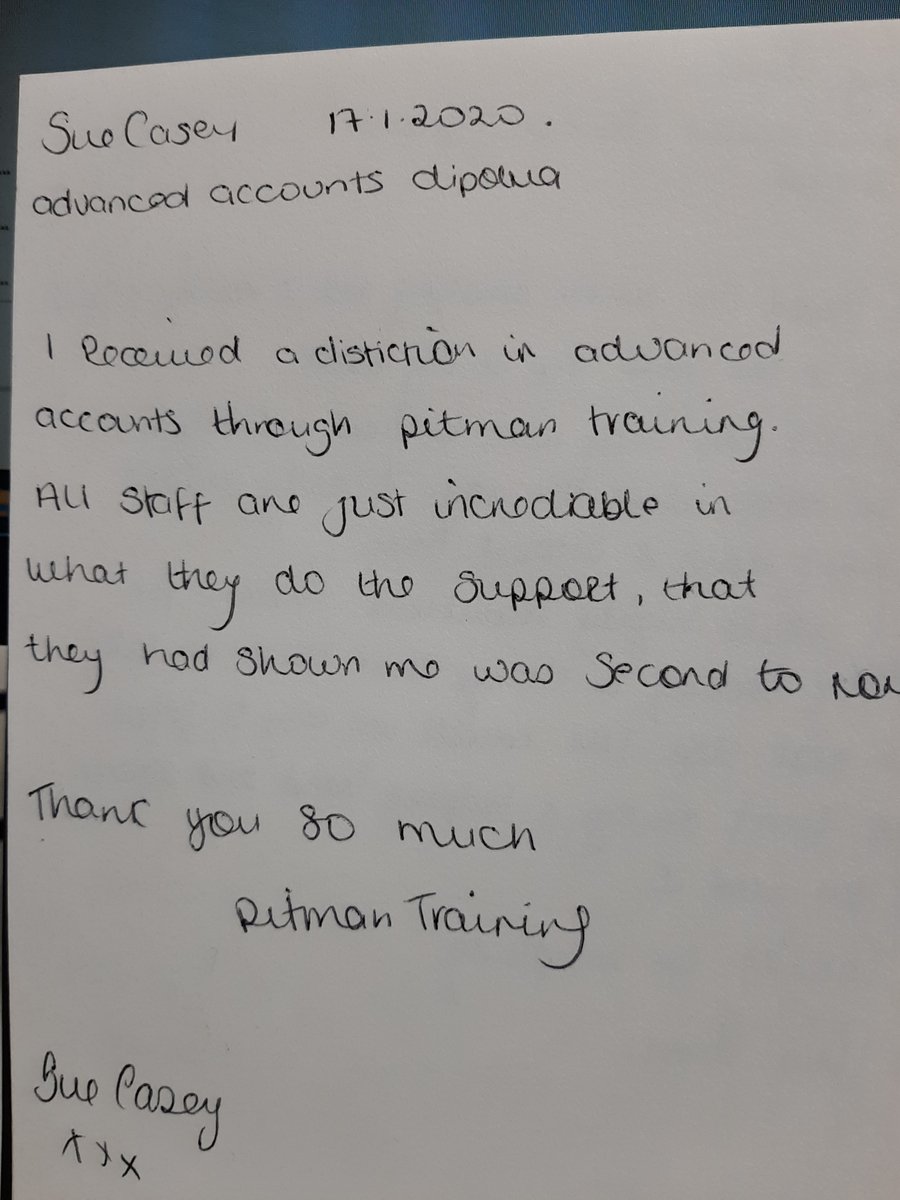 Sue Casey 17.1.2020.
advanced accounts dipolma
I Received a distiction in advanced
accounts through pitman training.
All staff are just incrediable in
what they do the support, that
they had shown me was second to non
Thank you so much
Pitman Training
Sue Casey
xxx